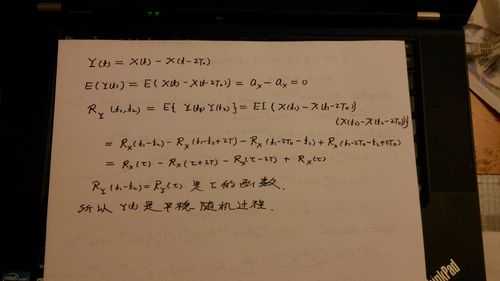 Y(t) = X(t) - X(t-2T₀)
E{Y(t)} = E{X(t) - X(t-2T₀)} = aₓ - aₓ = 0
R_Y(t₁,t₂) = E{Y(t₁)Y(t₂)} = E[{X(t₁) - X(t₁-2T₀)}
{X(t₂) - X(t₂-2T₀)}]
= Rₓ(t₁-t₂) - Rₓ(t₁-t₂+2T) - Rₓ(t₁-2T₀-t₂) + Rₓ(t₁-2T₀-t₂+2T₀)
= Rₓ(τ) - Rₓ(τ+2T) - Rₓ(τ-2T) + Rₓ(τ)
R_Y(t₁-t₂) = R_Y(τ) 是τ的函数.
所以 Y(t) 是平稳随机过程.
ThinkPad